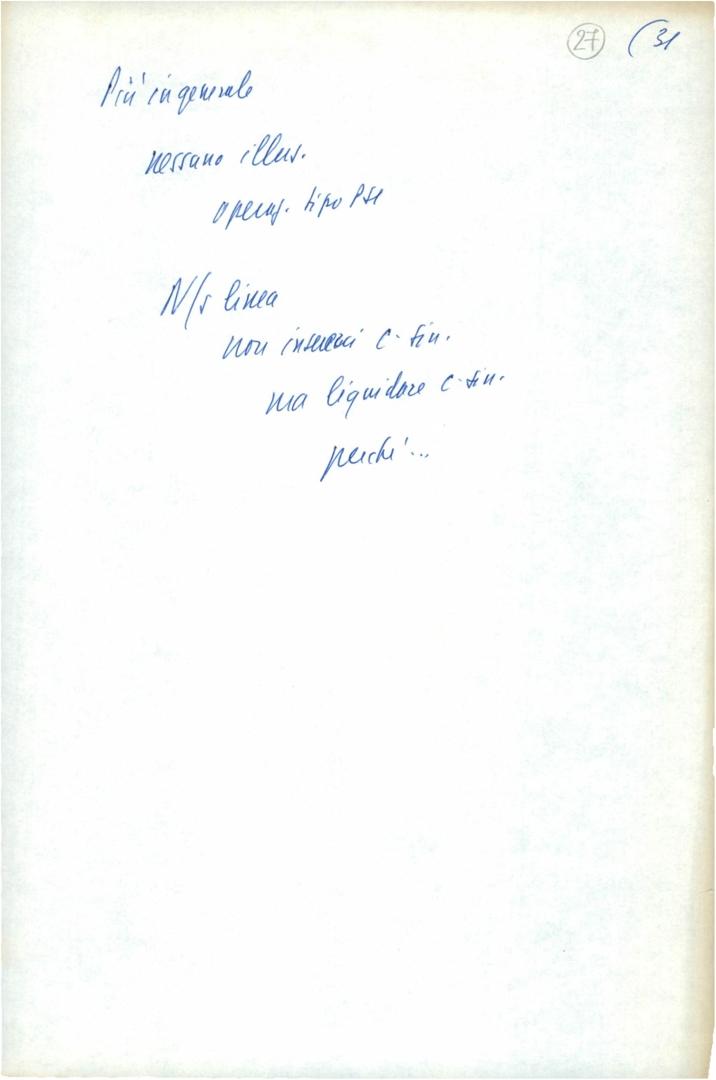 27 (31
Più in generale
nessuna illus.
operaz. tipo PSI
N/s linea
non inserirci c-sin.
ma liquidare c-sin.
perché...